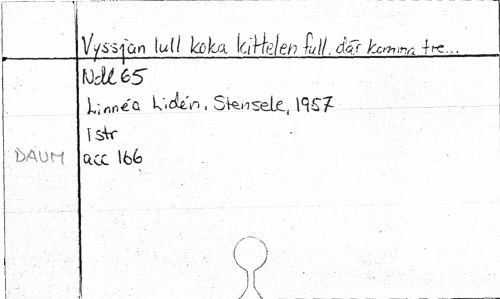 Vyssjan lull koka kittelen full. där komma tre...
Ndl 65
Linnéa Lidén, Stensele, 1957
1 str
DAUM acc 166